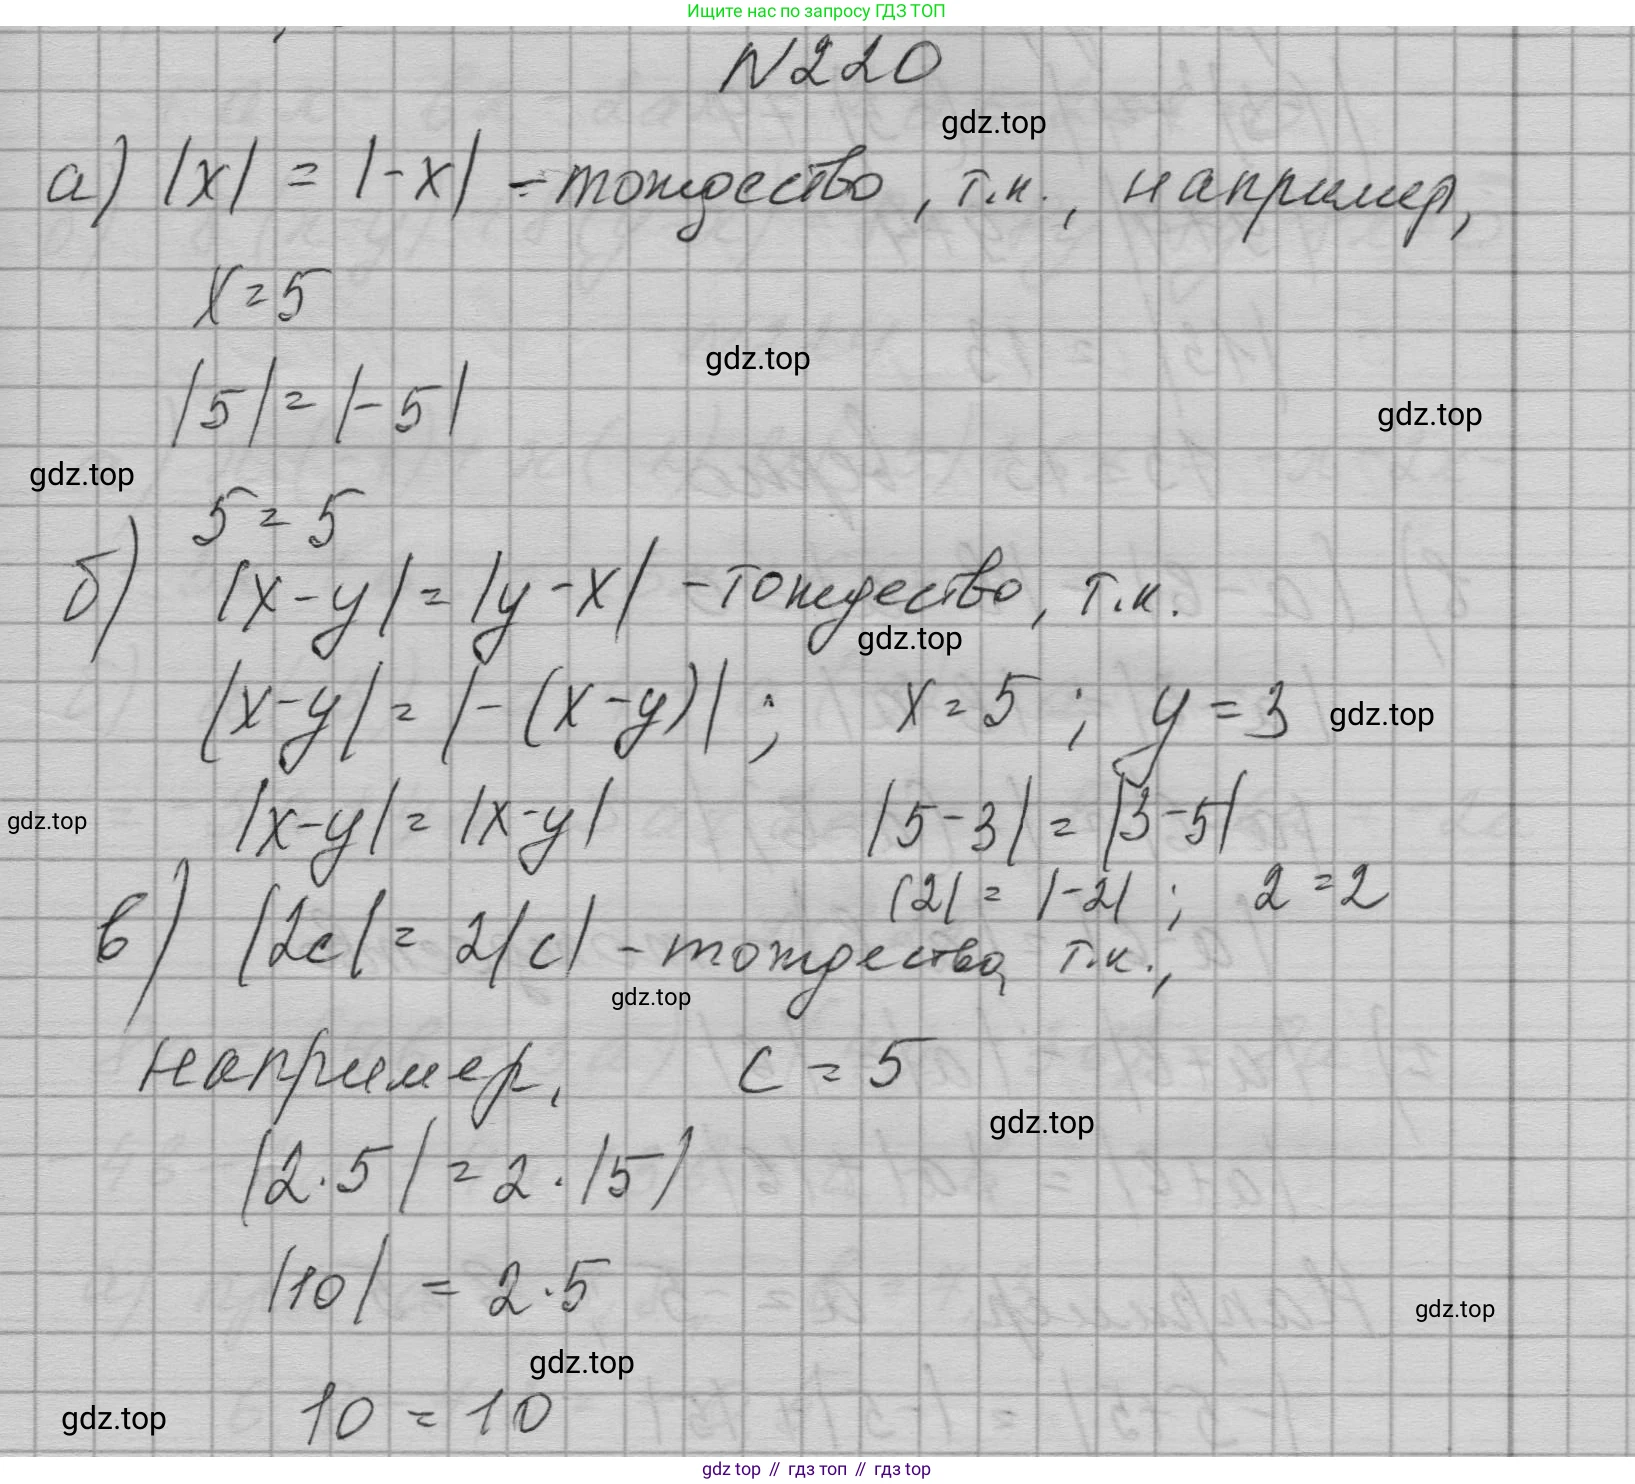 Ищите нас по запросу ГДЗ ТОП
N220
gdz.top
а) |x| = |-x| - тождество, т.к., например,
x=5
gdz.top
|5| = |-5|
gdz.top
gdz.top
5 = 5
б) |x-y| = |y-x| - тождество, т.к.
gdz.top
|x-y| = |-(x-y)| ; x=5 ; y=3
gdz.top
|x-y| = |x-y| |5-3| = |3-5|
gdz.top
|2| = |-2| ; 2=2
в) |2c| = 2|c| - тождество, т.к.,
gdz.top
например, c = 5
gdz.top
|2·5| = 2·|5|
|10| = 2·5
gdz.top
gdz.top
10 = 10
gdz.top
gdz top // гдз топ // гдз top